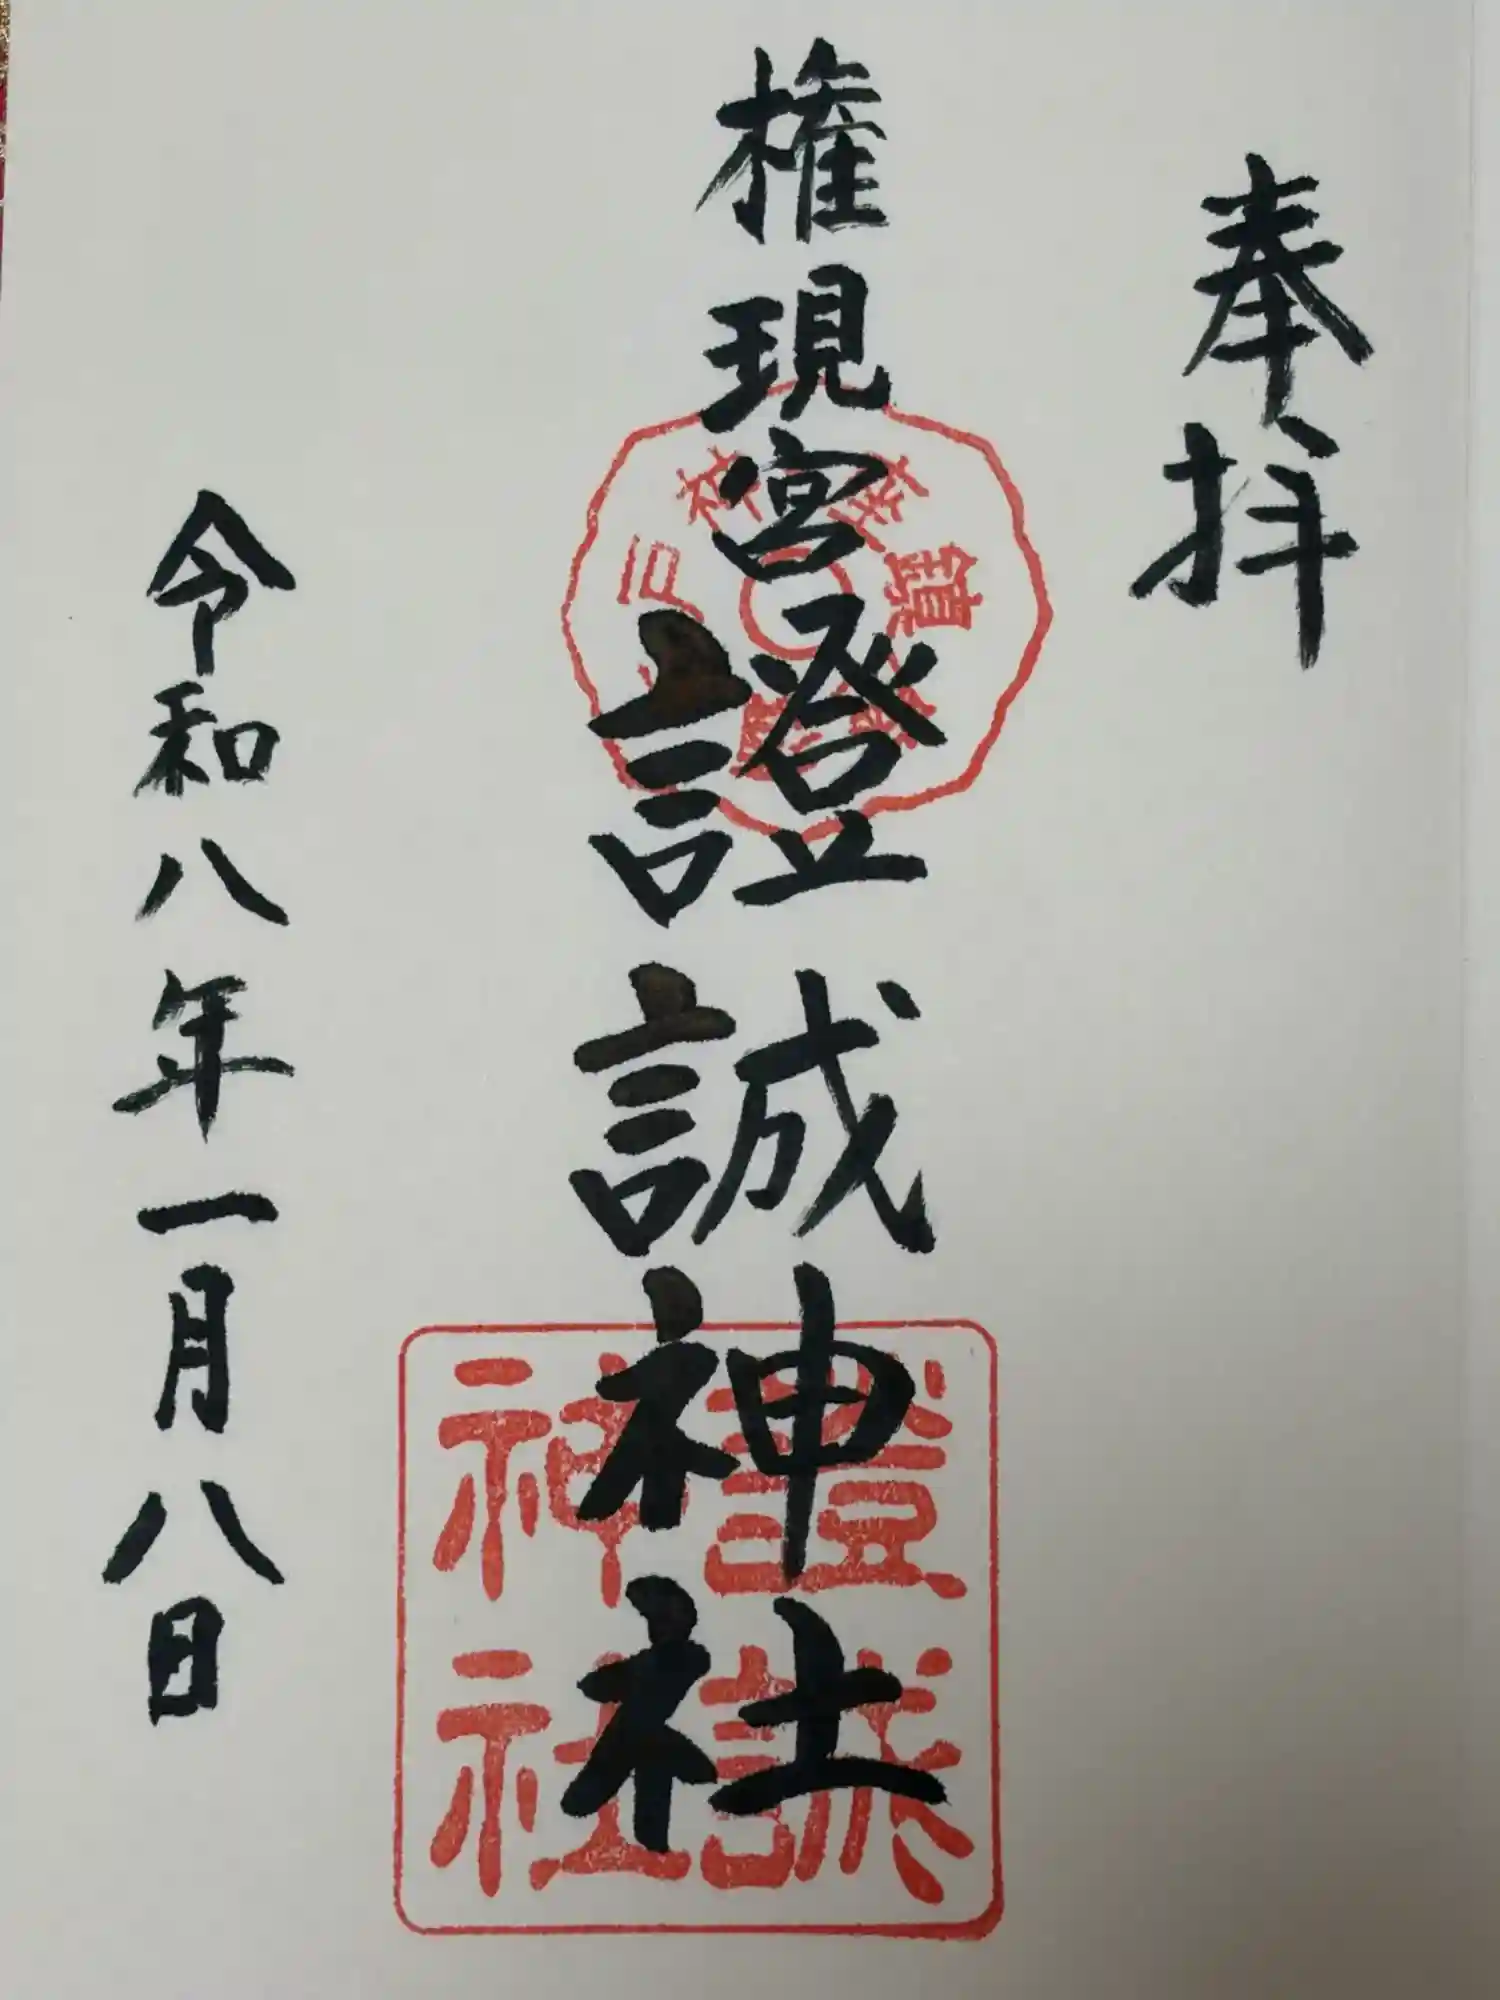 奉拝
権現宮證誠神社
證誠神社
令和八年一月八日